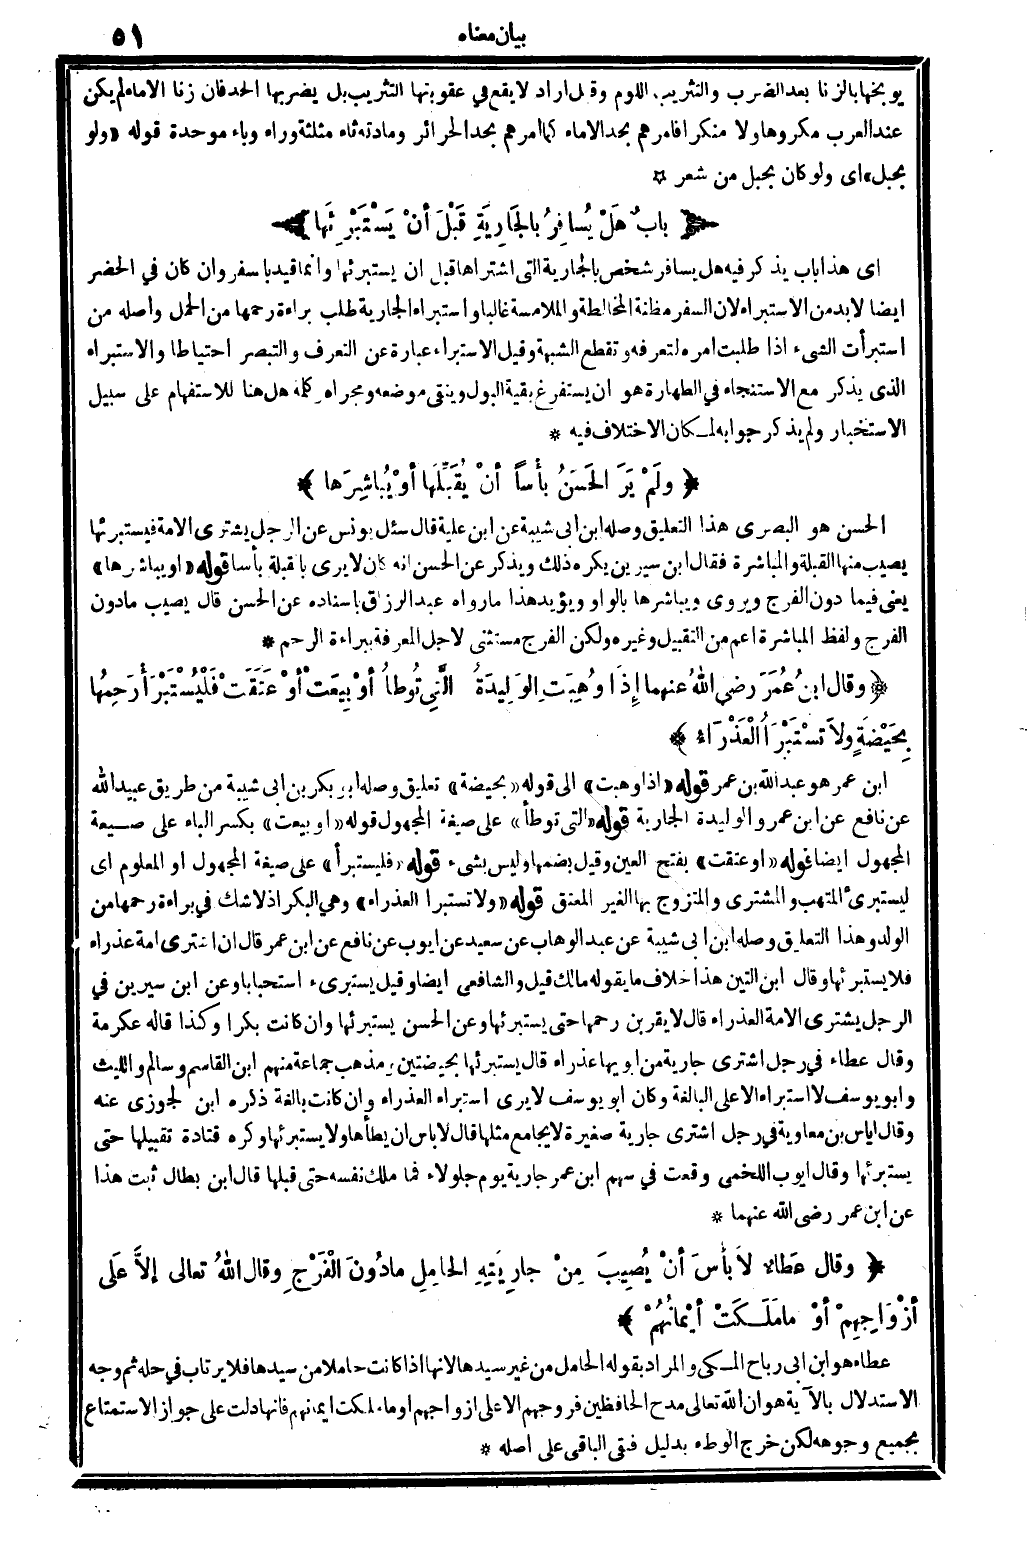 بيان معناه ٥١
يوبخها بالزنا بعد الضرب والتثريب اللوم وقيل اراد لا يقع في عقوبتها التثريب بل يضربها الحد فان زنا الاماء لم يكن
عند العرب مكروها ولا منكرا فامرهم بحد الاماء كما امرهم بحد الحرائر ومادته ثاء مثلثة وراء وباء موحدة قوله «ولو
بحبل» اى ولو كان بحبل من شعر ☆
﴿ بابٌ هَلْ يُسافِرُ بالجَارِيَةِ قَبْلَ أنْ يَسْتَبْرِئَها ﴾
اى هذا باب يذكر فيه هل يسافر شخص بالجارية التى اشتراها قبل ان يستبرئها وانما قيد با سفر وان كان في الحضر
ايضا لا بد من الاستبراء لان السفر مظنة المخالطة والملامسة غالبا واستبراء الجارية طلب براءة رحمها من الحمل وأصله من
استبرأت الشىء اذا طلبت امره لتعرفه وتقطع الشبهة وقيل الاستبراء عبارة عن التعرف والتبصر احتياطا والاستبراء
الذى يذكر مع الاستنجاء في الطهارة هو ان يستفرغ بقية البول وينقى موضعه ومجراه وكلمة هل هنا للاستفهام على سبيل
الاستخبار ولم يذكر جوابه لمكان الاختلاف فيه *
﴿ ولَمْ يَرَ الحَسَنُ بأْساً أنْ يُقَبِّلَها أوْ يُباشِرَها ﴾
الحسن هو البصرى هذا التعليق وصله ابن ابى شيبة عن ابن علية قال سئل يونس عن الرجل يشترى الامة فيستبرئها
يصيب منها القبلة والمباشرة فقال ابن سيرين يكره ذلك ويذكر عن الحسن انه كان لا يرى بالقبلة بأسا قوله «او يباشرها»
يعنى فيما دون الفرج ويروى ويباشرها بالواو ويؤيد هذا ما رواه عبد الرزاق باسناده عن الحسن قال يصيب ما دون
الفرج ولفظ المباشرة اعم من التقبيل وغيره ولكن الفرج مستثنى لاجل المعرفة ببراءة الرحم *
﴿ وقال ابنُ عُمَرَ رضي اللهُ عنهما إِذَا وُهِبَتِ الوَلِيدَةُ الَّتِي تُوطأُ أوْ بِيعَتْ أوْ عَتَقَتْ فَلْيُسْتَبْرَأْ رَحِمُها
بِحَيْضَةٍ ولاَ تسْتَبْرَأُ الْعَذْرَاءُ ﴾
ابن عمر هو عبد الله بن عمر قوله «اذا وهبت» الى قوله «بحيضة» تعليق وصله ابو بكر بن ابى شيبة من طريق عبيد الله
عن نافع عن ابن عمر والوليدة الجارية قوله «التى توطأ» على صيغة المجهول قوله «او بيعت» بكسر الباء على صيغة
المجهول ايضا قوله «او عتقت» بفتح العين وقيل بضمها وليس بشىء قوله «فليستبرأ» على صيغة المجهول او المعلوم اى
ليستبرئ المتهب والمشترى والمتزوج بها الغير المعتق قوله «ولا تستبرا العذراء» وهي البكر اذ لا شك في براءة رحمها من
الولد وهذا التعليق وصله ابن ابى شيبة عن عبد الوهاب عن سعيد عن ايوب عن نافع عن ابن عمر قال ان اشترى امة عذراء
فلا يستبرئها وقال ابن التين هذا خلاف ما يقوله مالك قيل والشافعى ايضا وقيل يستبرىء استحبابا وعن ابن سيرين في
الرجل يشترى الامة العذراء قال لا يقربن رحمها حتى يستبرئها وعن الحسن يستبرئها وان كانت بكرا وكذا قاله عكرمة
وقال عطاء في رجل اشترى جارية من ابويها عذراء قال يستبرئها بحيضتين ومذهب جماعة منهم ابن القاسم وسالم والليث
وابو يوسف لا استبراء الا على البالغة وكان ابو يوسف لا يرى استبراء العذراء وان كانت بالغة ذكره ابن الجوزى عنه
وقال اياس بن معاوية في رجل اشترى جارية صغيرة لا يجامع مثلها قال لا باس ان يطأها ولا يستبرئها وكره قتادة تقبيلها حتى
يستبرئها وقال ايوب اللخمى وقعت في سهم ابن عمر جارية يوم جلولاء فما ملك نفسه حتى قبلها قال ابن بطال ثبت هذا
عن ابن عمر رضى الله عنهما *
﴿ وقال عطَاءٌ لاَ بأْسَ أنْ يُصِيبَ مِنْ جارِيَتِهِ الحامِلِ مادُونَ الْفَرْجِ وقال اللهُ تعالى إلاَّ عَلَى
أزْوَاجِهِمْ أوْ ما مَلَكَتْ أيْمانُهُمْ ﴾
عطاء هو ابن ابى رباح المكى والمراد بقوله الحامل من غير سيدها لانها اذا كانت حاملا من سيدها فلا يرتاب في حله ثم وجه
الاستدلال بالآية هو ان الله تعالى مدح الحافظين فروجهم الا على ازواجهم او ما ملكت ايمانهم فانها دلت على جواز الاستمتاع
بجميع وجوهه لكن خرج الوطء بدليل فبقى الباقى على اصله *